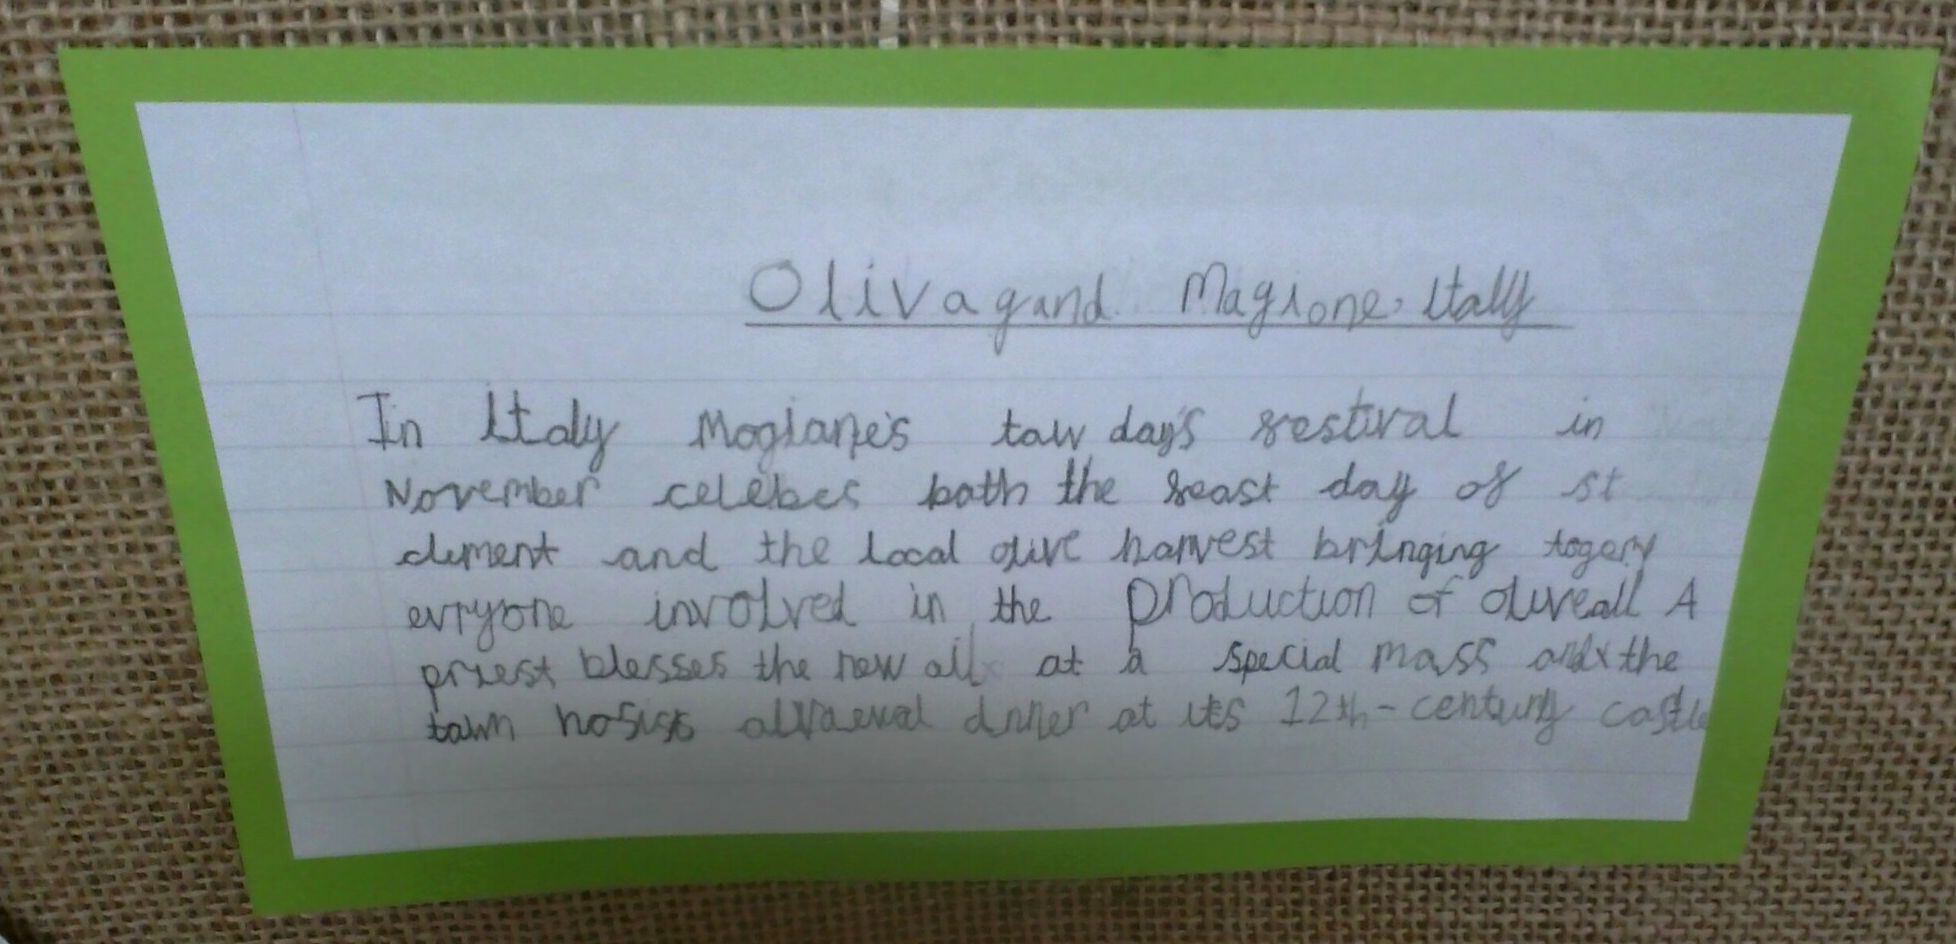 Olivagand Magione, Italy
In Italy Magione's taw day's festival in
November celebes both the feast day of st
clement and the local olive harvest bringing togery
evryone involved in the production of oliveall A
priest blesses the new oil at a special mass and the
tawn dinner at its 12th-century castle